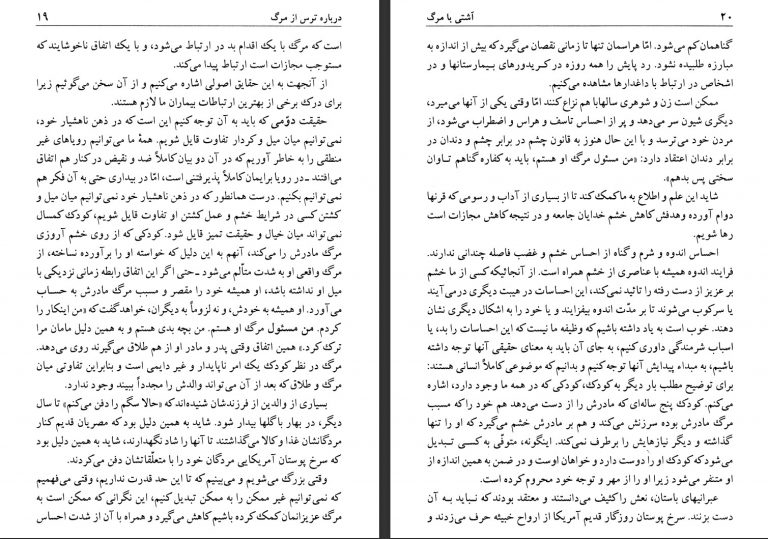 درباره ترس از مرگ ۱۹
است که مرگ با یک اقدام بد در ارتباط می‌شود، و با یک اتفاق ناخوشایند که
مستوجب مجازات است ارتباط پیدا می‌کند.
از آنجهت به این حقایق اصولی اشاره می‌کنیم و از آن سخن می‌گوئیم زیرا
برای درک برخی از بهترین ارتباطات بیماران ما لازم هستند.
حقیقت دوّمی که باید به آن توجه کنیم این است که در ذهن ناهشیار خود،
نمی‌توانیم میان میل و کردار تفاوت قایل شویم. همهٔ ما می‌توانیم رویاهای غیر
منطقی را به خاطر آوریم که در آن دو بیان کاملاً ضد و نقیض در کنار هم اتفاق
می‌افتند ـ در رویا برایمان کاملاً پذیرفتنی است، امّا در بیداری حتی به آن فکر هم
نمی‌توانیم بکنیم. درست همانطور که در ذهن ناهشیار خود نمی‌توانیم میان میل و
کشتن کسی در شرایط خشم و عمل کشتن او تفاوت قایل شویم، کودک کمسال
نمی‌تواند میان خیال و حقیقت تمیز قایل شود. کودکی که از روی خشم آروزی
مرگ مادرش را می‌کند، آنهم به این دلیل که خواسته او را برآورده نساخته، از
مرگ واقعی او به شدت متألّم می‌شود ـ حتی اگر این اتفاق رابطه زمانی نزدیکی با
میل او نداشته باشد، او همیشه خود را مقصر و مسبب مرگ مادرش به حساب
می‌آورد. او همیشه به خودش، و نه لزوماً به دیگران، خواهد گفت که «من اینکار را
کردم. من مسئول مرگ او هستم. من بچه بدی هستم و به همین دلیل مامان مرا
ترک کرد.» همین اتفاق وقتی پدر و مادر او از هم طلاق می‌گیرند روی می‌دهد.
مرگ در نظر کودک یک امر ناپایدار و غیر دایمی است و بنابراین تفاوتی میان
مرگ و طلاق که بعد از آن می‌تواند والدش را مجدداً ببیند وجود ندارد.
بسیاری از والدین از فرزندشان شنیده‌اند که «حالا سگم را دفن می‌کنم» تا سال
دیگر، در بهار با گلها بیدار شود. شاید به همین دلیل بود که مصریان قدیم کنار
مردگانشان غذا و کالا می‌گذاشتند تا آنها را شاد نگهدارند، شاید به همین دلیل بود
که سرخ پوستان آمریکایی مردگان خود را با متعلّقاتشان دفن می‌کردند.
وقتی بزرگ می‌شویم و می‌بینیم که تا این حد قدرت نداریم، وقتی می‌فهمیم
که نمی‌توانیم غیر ممکن را به ممکن تبدیل کنیم، این نگرانی که ممکن است به
مرگ عزیزانمان کمک کرده باشیم کاهش می‌گیرد و همراه با آن از شدت احساس
آشتی با مرگ ۲۰
گناهمان کم می‌شود. امّا هراسمان تنها تا زمانی نقصان می‌گیرد که بیش از اندازه به
مبارزه طلبیده نشود. رد پایش را همه روزه در کریدورهای بیمارستانها و در
اشخاص در ارتباط با داغدارها مشاهده می‌کنیم.
ممکن است زن و شوهری سالها با هم نزاع کنند امّا وقتی یکی از آنها می‌میرد،
دیگری شیون سر می‌دهد و پر از احساس تاسف و هراس و اضطراب می‌شود، از
مردن خود می‌ترسد و با این حال هنوز به قانون چشم در برابر چشم و دندان در
برابر دندان اعتقاد دارد: «من مسئول مرگ او هستم، باید به کفاره گناهم تاوان
سختی پس بدهم».
شاید این علم و اطلاع به ما کمک کند تا از بسیاری از آداب و رسومی که قرنها
دوام آورده و هدفش کاهش خشم خدایان جامعه و در نتیجه کاهش مجازات است
رها شویم.
احساس اندوه و شرم و گناه از احساس خشم و غضب فاصله چندانی ندارند.
فرایند اندوه همیشه با عناصری از خشم همراه است. از آنجائیکه کسی از ما خشم
بر عزیز از دست رفته را تائید نمی‌کند، این احساسات در هیبت دیگری در می‌آیند
یا سرکوب می‌شوند تا بر مدّت اندوه بیفزایند و یا خود را به اشکال دیگری نشان
دهند. خوب است به یاد داشته باشیم که وظیفه ما نیست که این احساسات را بد، یا
اسباب شرمندگی داوری کنیم، به جای آن باید به معنای حقیقی آنها توجه داشته
باشیم، به مبداء پیدایش آنها توجه کنیم و بدانیم که موضوعی کاملاً انسانی هستند:
برای توضیح مطلب بار دیگر به کودک، کودکی که در همه ما وجود دارد، اشاره
می‌کنم. کودک پنج ساله‌ای که مادرش را از دست می‌دهد هم خود را که مسبب
مرگ مادرش بوده سرزنش می‌کند و هم بر مادرش خشم می‌گیرد که او را تنها
گذاشته و دیگر نیازهایش را برطرف نمی‌کند. اینگونه، متوفّی به کسی تبدیل
می‌شود که کودک او را دوست دارد و خواهان اوست و در ضمن به همین اندازه از
او متنفر می‌شود زیرا او را از مهر و توجه خود محروم کرده است.
عبرانیهای باستان، نعش را کثیف می‌دانستند و معتقد بودند که نباید به آن
دست بزنند. سرخ پوستان روزگار قدیم آمریکا از ارواح خبیثه حرف می‌زدند و